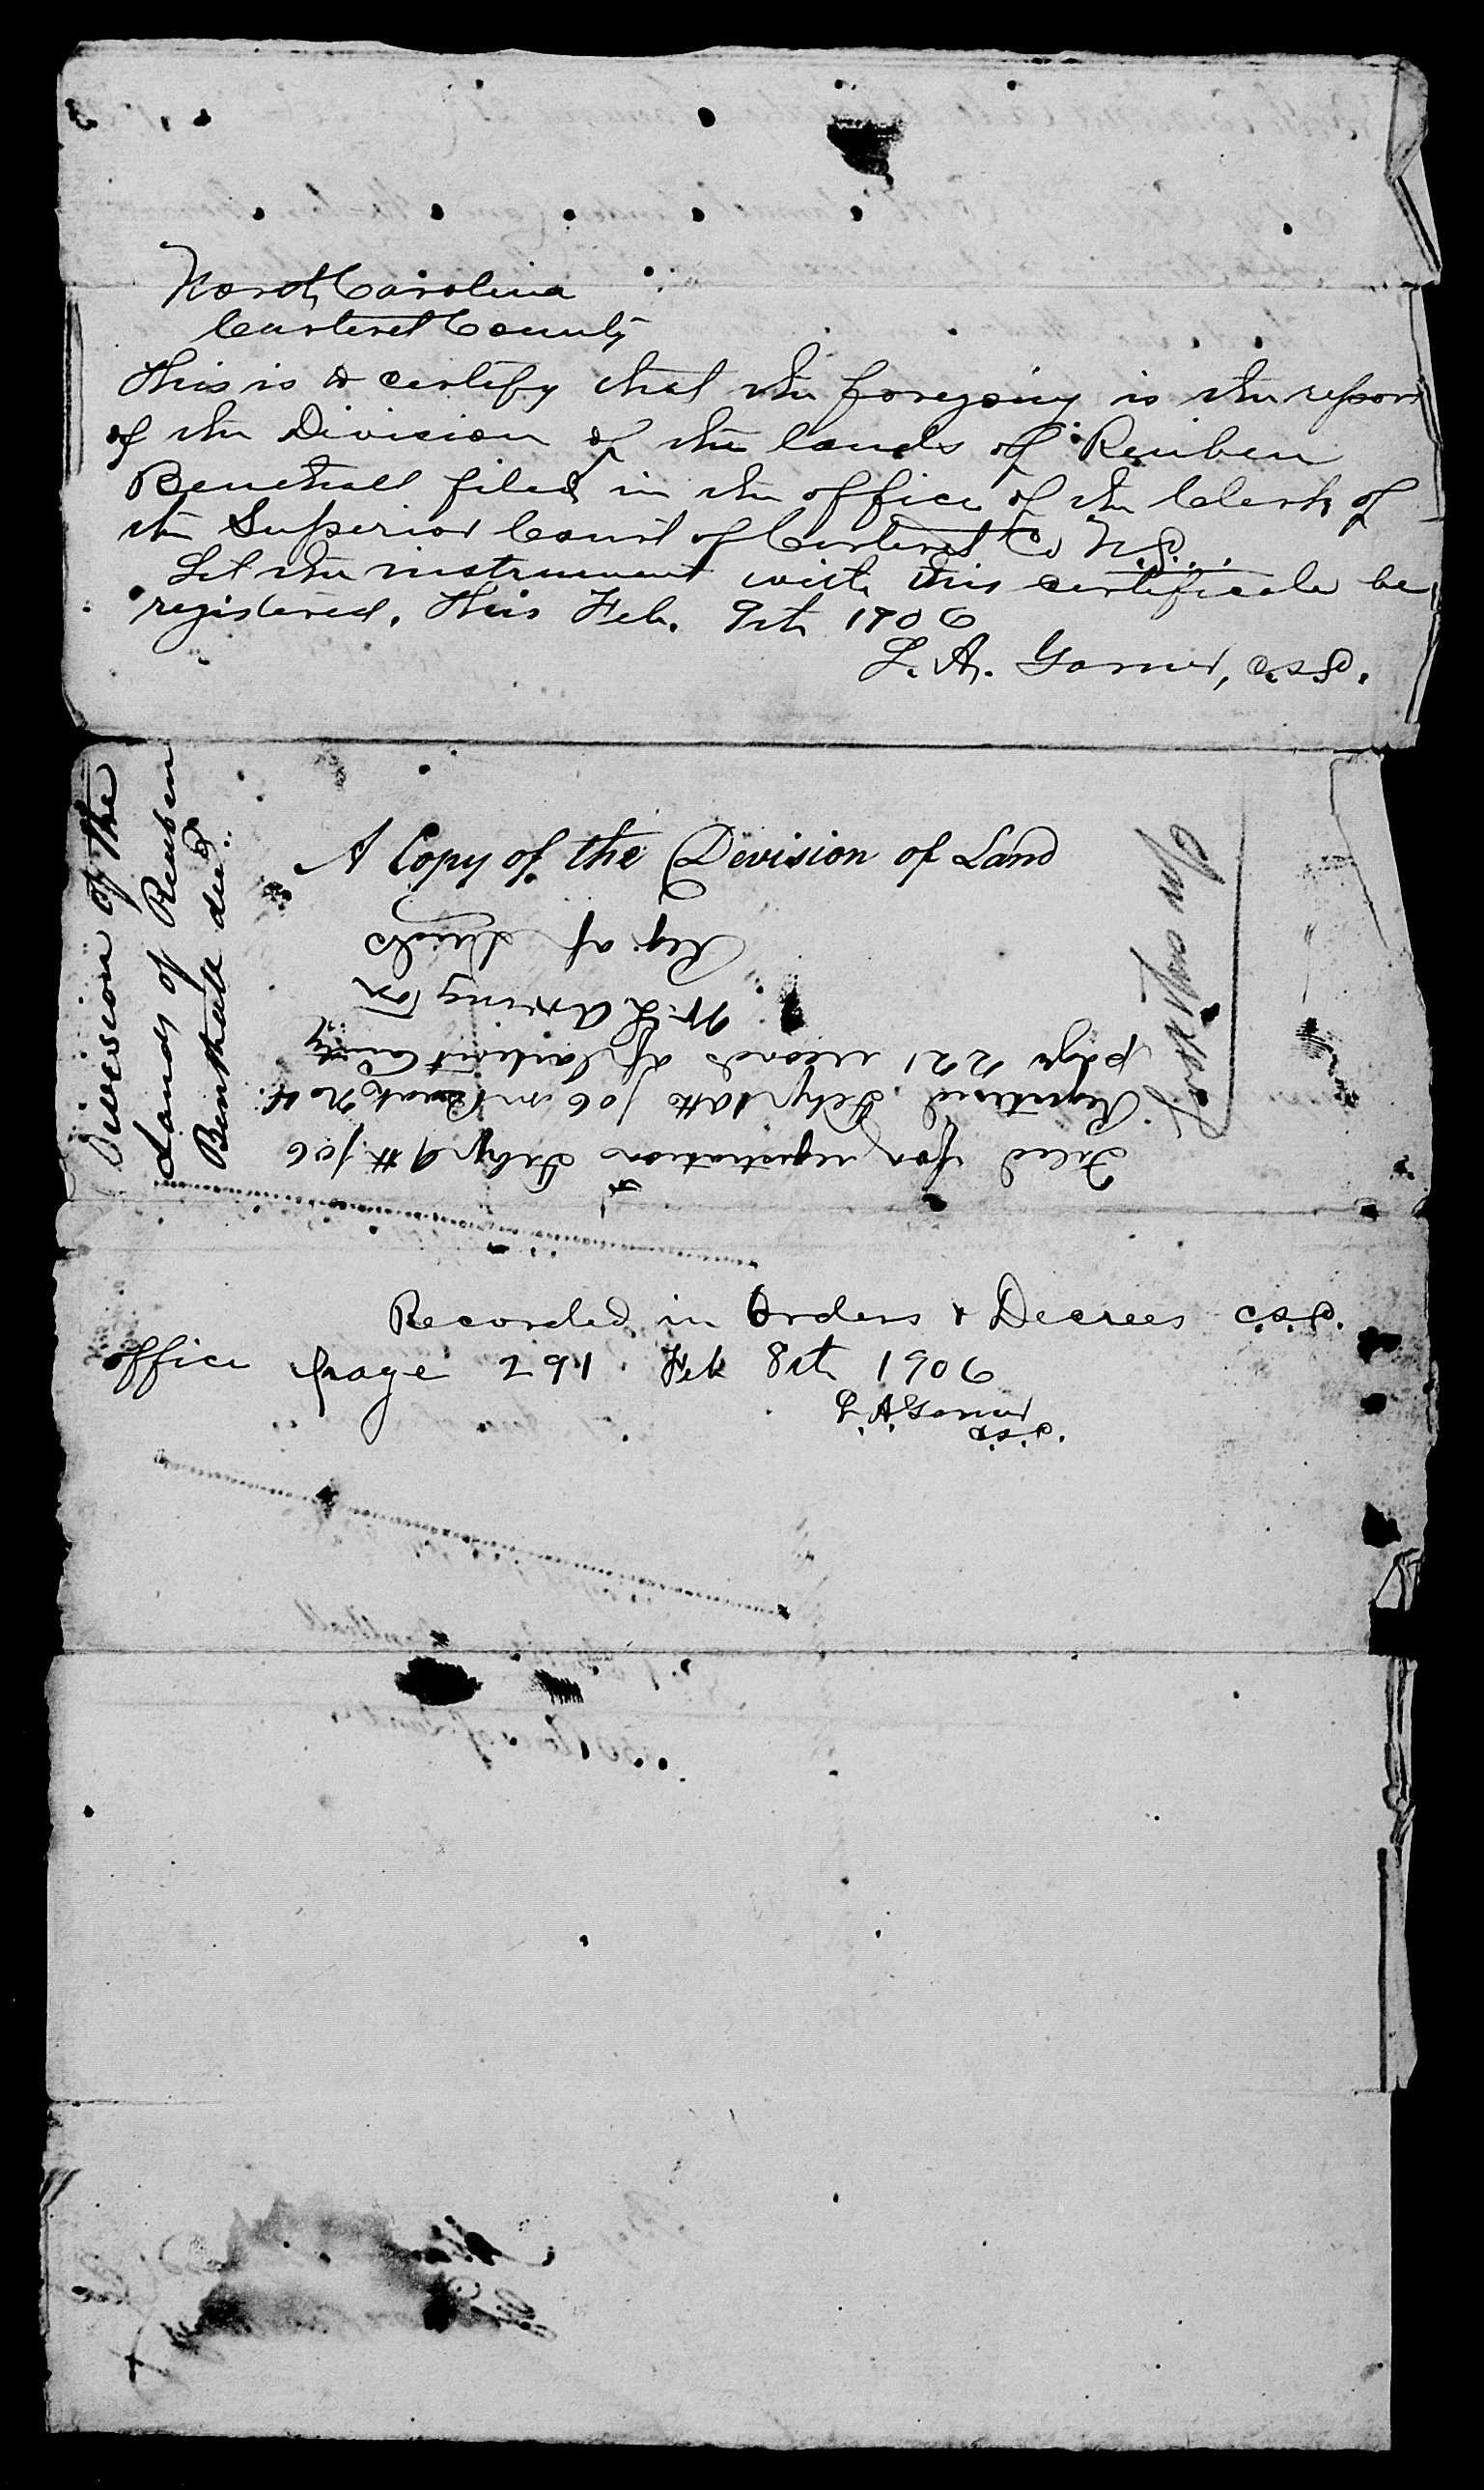 North Carolina
Carteret County
This is to certify that the foregoing is the report
of the Division of the lands of Reuben
Benthall filed in the office of the Clerk of
the Superior Court of Carteret Co N.C.
Let the instrument with this certificate be
registered. This Feb. 9th 1906
L. A. Garner, C.S.C.
Division of the
Lands of Reuben
Benthall decd.
A Copy of the Division of Land
Filed for registration Feby 9th /06
Registered Feby 10th /06 in Book No 4
page 221 records of Carteret County
W. L. Arrington
Reg. of Deeds
Recorded in Orders & Decrees C.S.C.
office page 291. Feb 8th 1906
L. A. Garner
C.S.C.